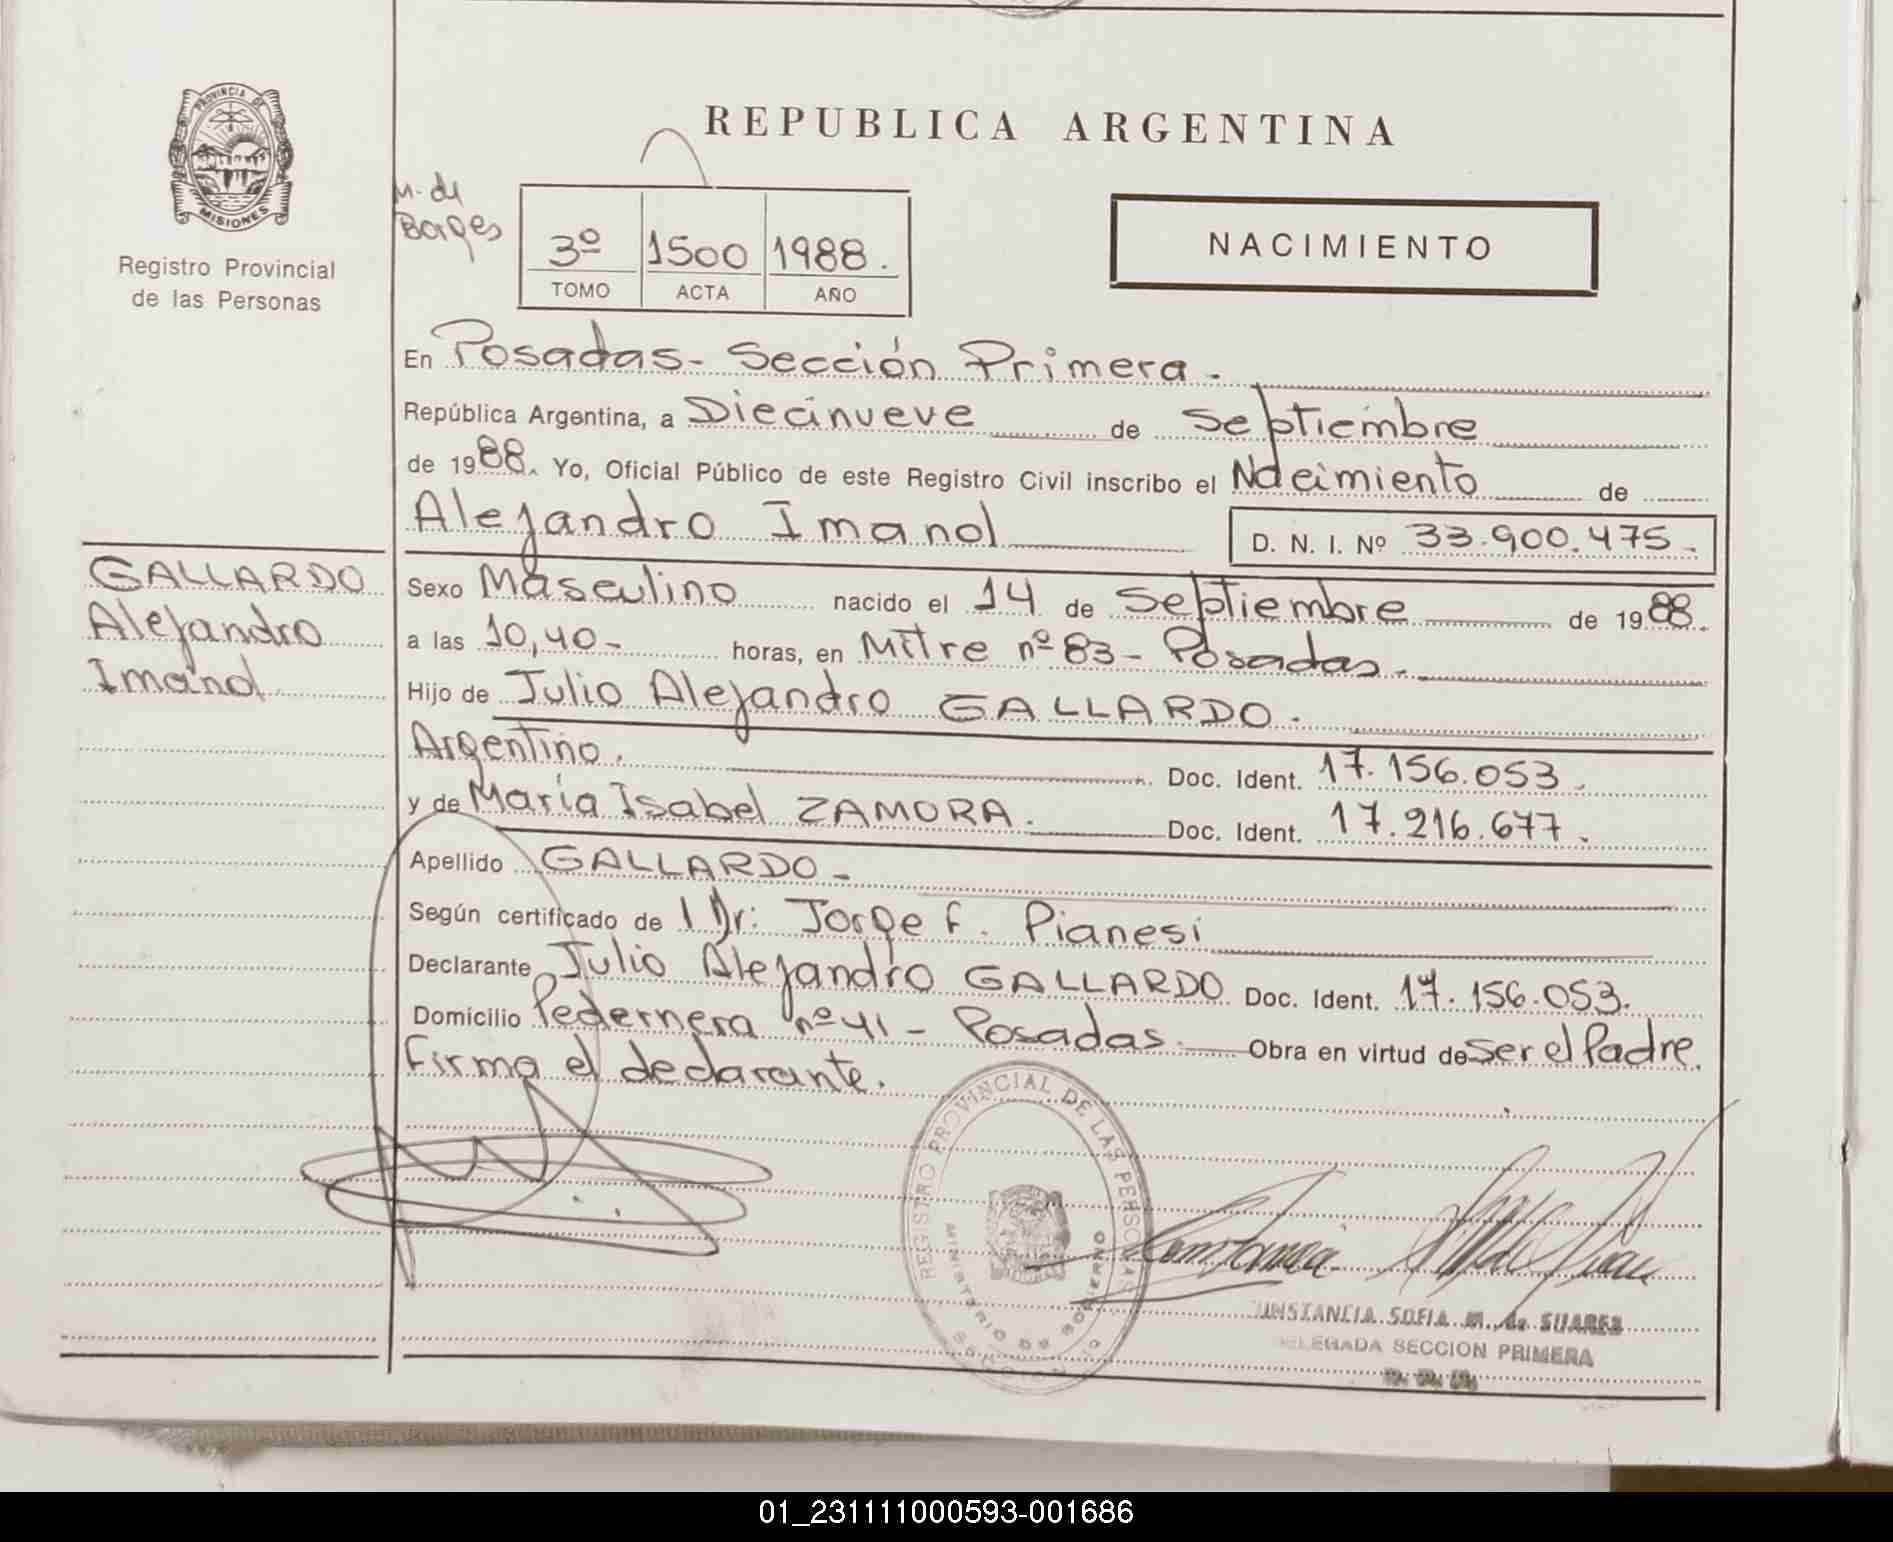 PROVINCIA DE
MISIONES
Registro Provincial
de las Personas
REPUBLICA ARGENTINA
M. de
Borges
3º 1500 1988.
TOMO ACTA AÑO
NACIMIENTO
En Posadas - Sección Primera.
República Argentina, a Diecinueve de Septiembre
de 1988. Yo, Oficial Público de este Registro Civil inscribo el Nacimiento de
Alejandro Imanol D. N. I. Nº 33.900.475.
GALLARDO
Alejandro
Imanol
Sexo Masculino nacido el 14 de Septiembre de 1988.
a las 10,40- horas, en Mitre nº 83 - Posadas.
Hijo de Julio Alejandro GALLARDO.
Argentino. Doc. Ident. 17.156.053.
y de María Isabel ZAMORA. Doc. Ident. 17.216.677.
Apellido GALLARDO -
Según certificado de l Dr: Jorge F. Pianesi
Declarante Julio Alejandro GALLARDO Doc. Ident. 17.156.053.
Domicilio Pedernera nº 41 - Posadas Obra en virtud de ser el Padre.
Firma el declarante.
REGISTRO PROVINCIAL DE LAS PERSONAS
MINISTERIO DE GOBIERNO
CONSTANCIA SOFIA M. de SUAREZ
DELEGADA SECCION PRIMERA
01_231111000593-001686